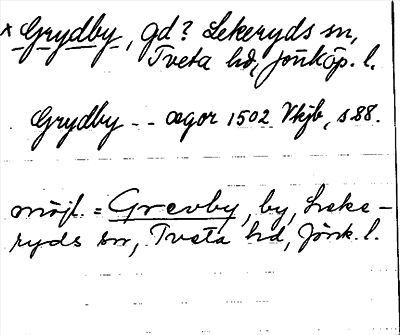 × Grydby, gd? Lekeryds sn,
Tveta hd, Jönköp. l.
Grydby -- ægor 1502 Vkjb, s 88.
möjl. = Grevby, by, Leke-
ryds sn, Tveta hd, Jönk. l.